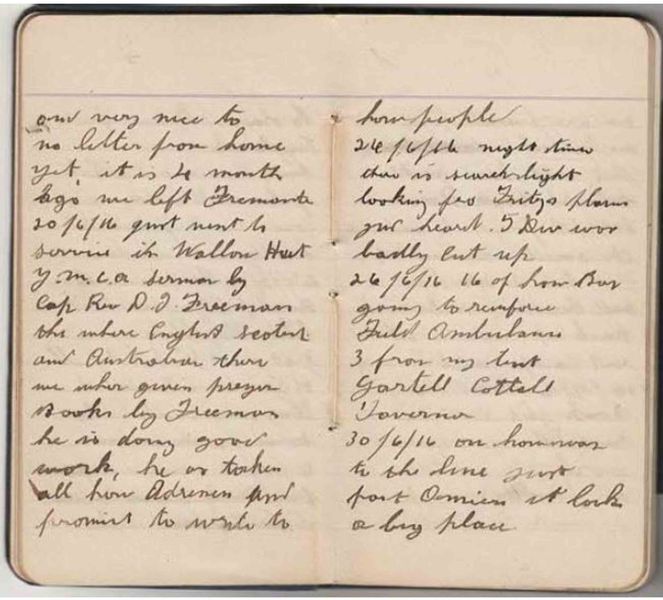 and very nice to
no letter from home
yet, it is 4 month
ago we left Fremantle
20/6/16 just went to
service in Wallon Hut
Y.M.C.A sermon by
Cap Rev D. J. Freeman
ther where English scotish
and Australian there
we wher given prayer
Books by Freeman
he is doing good
work, he as taken
all how Adresses and
promist to write to
how people
24/6/16 night time
ther is searchlight
looking for Fritys planes
just heard. 5 Div wor
badly cut up
26/6/16 16 of how Boy
going to reinforce
Field Ambulance
3 from my tent
Gartell Cottell
Taverner
30/6/16 on how way
to the line just
past Amiens it looks
a big place